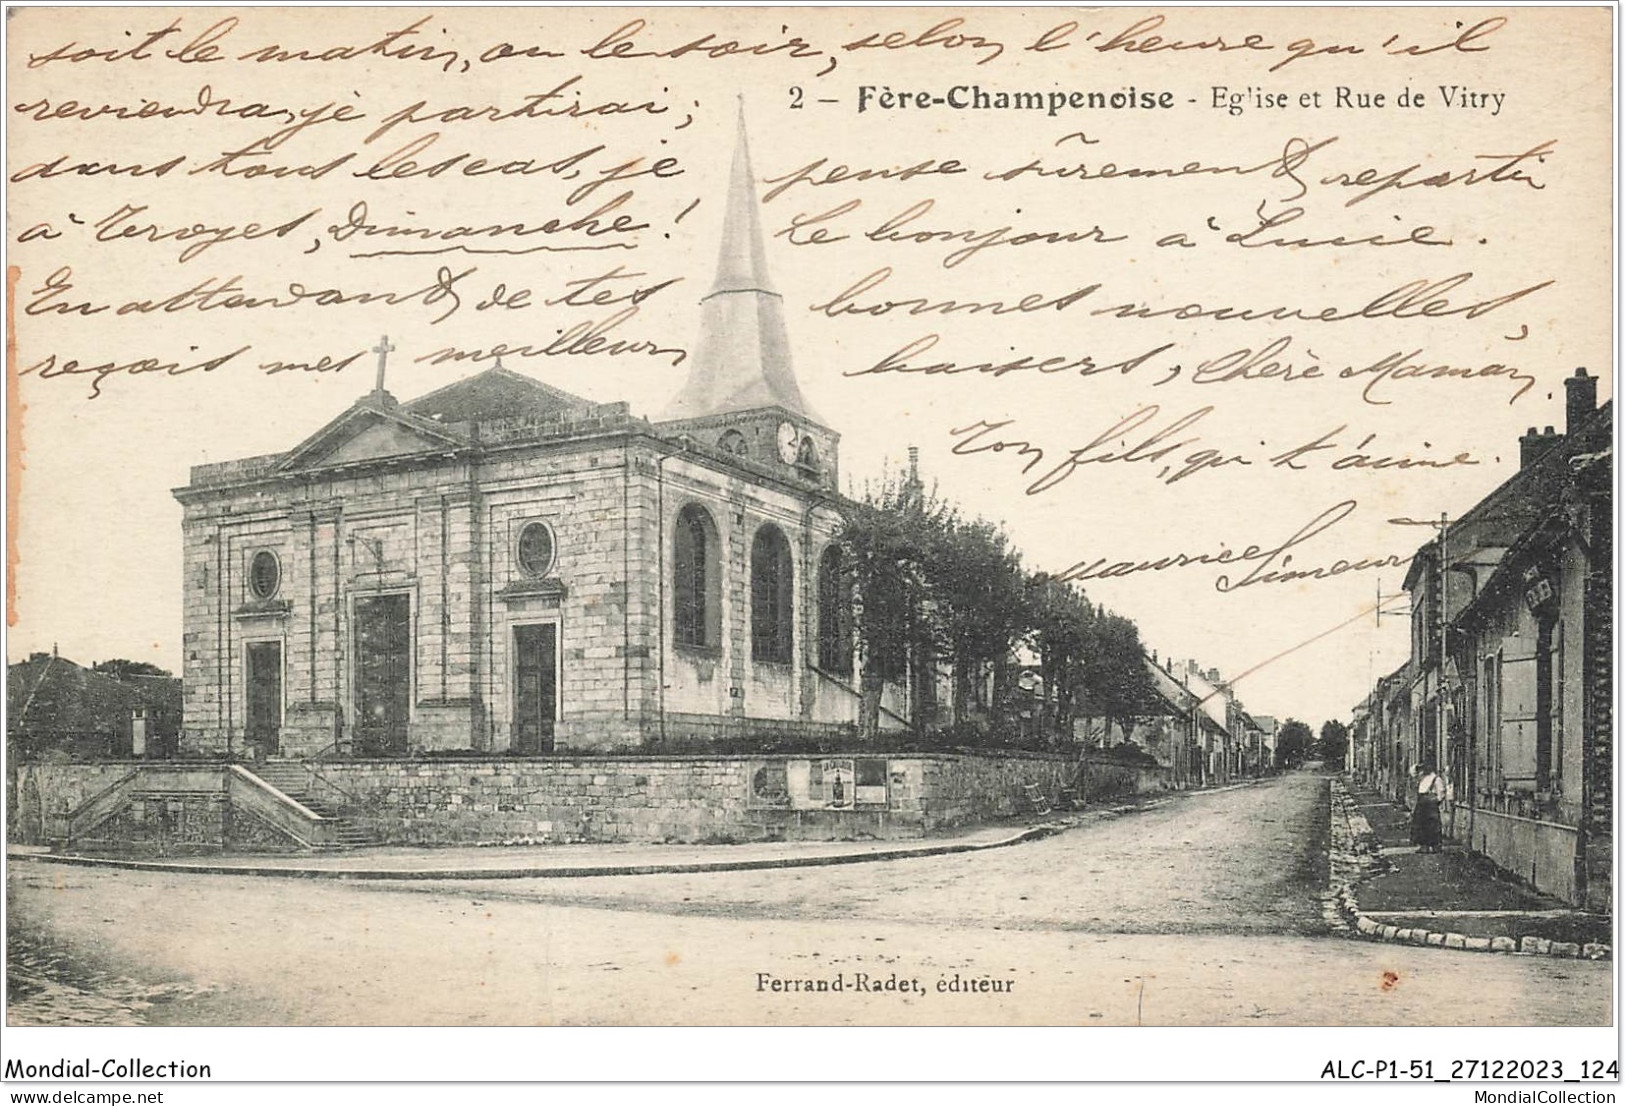 soit le matin, ou le soir, selon l'heure qu'il
reviendra, je partirai;
2 – Fère-Champenoise - Eglise et Rue de Vitry
dans tous les cas, je pense sûrement repartir
à Troyes, Dimanche! Le bonjour à Lucie.
En attendant de tes bonnes nouvelles,
reçois mes meilleurs baisers, Chère Maman.
Ton fils, qui t'aime.
Maurice Simeur
Ferrand-Radet, éditeur
Mondial-Collection
ALC-P1-51_27122023_124
Delcampe.net
MondialCollection